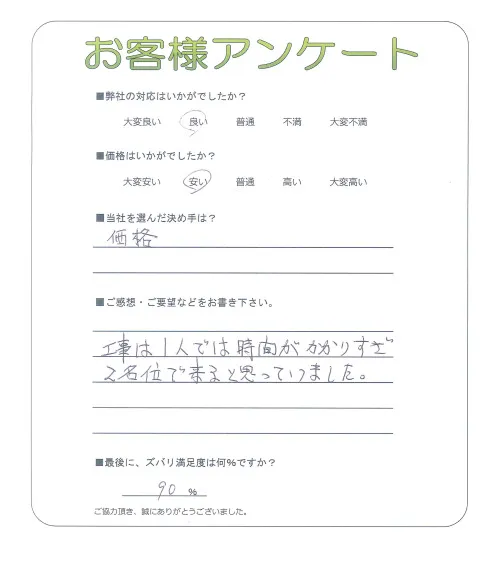 お客様アンケート
■弊社の対応はいかがでしたか？
大変良い 良い 普通 不満 大変不満
■価格はいかがでしたか？
大変安い 安い 普通 高い 大変高い
■当社を選んだ決め手は？
価格
■ご感想・ご要望などをお書き下さい。
工事は1人では時間がかかりすぎ
2名位で来ると思っていました。
■最後に、ズバリ満足度は何%ですか？
90 %
ご協力頂き、誠にありがとうございました。